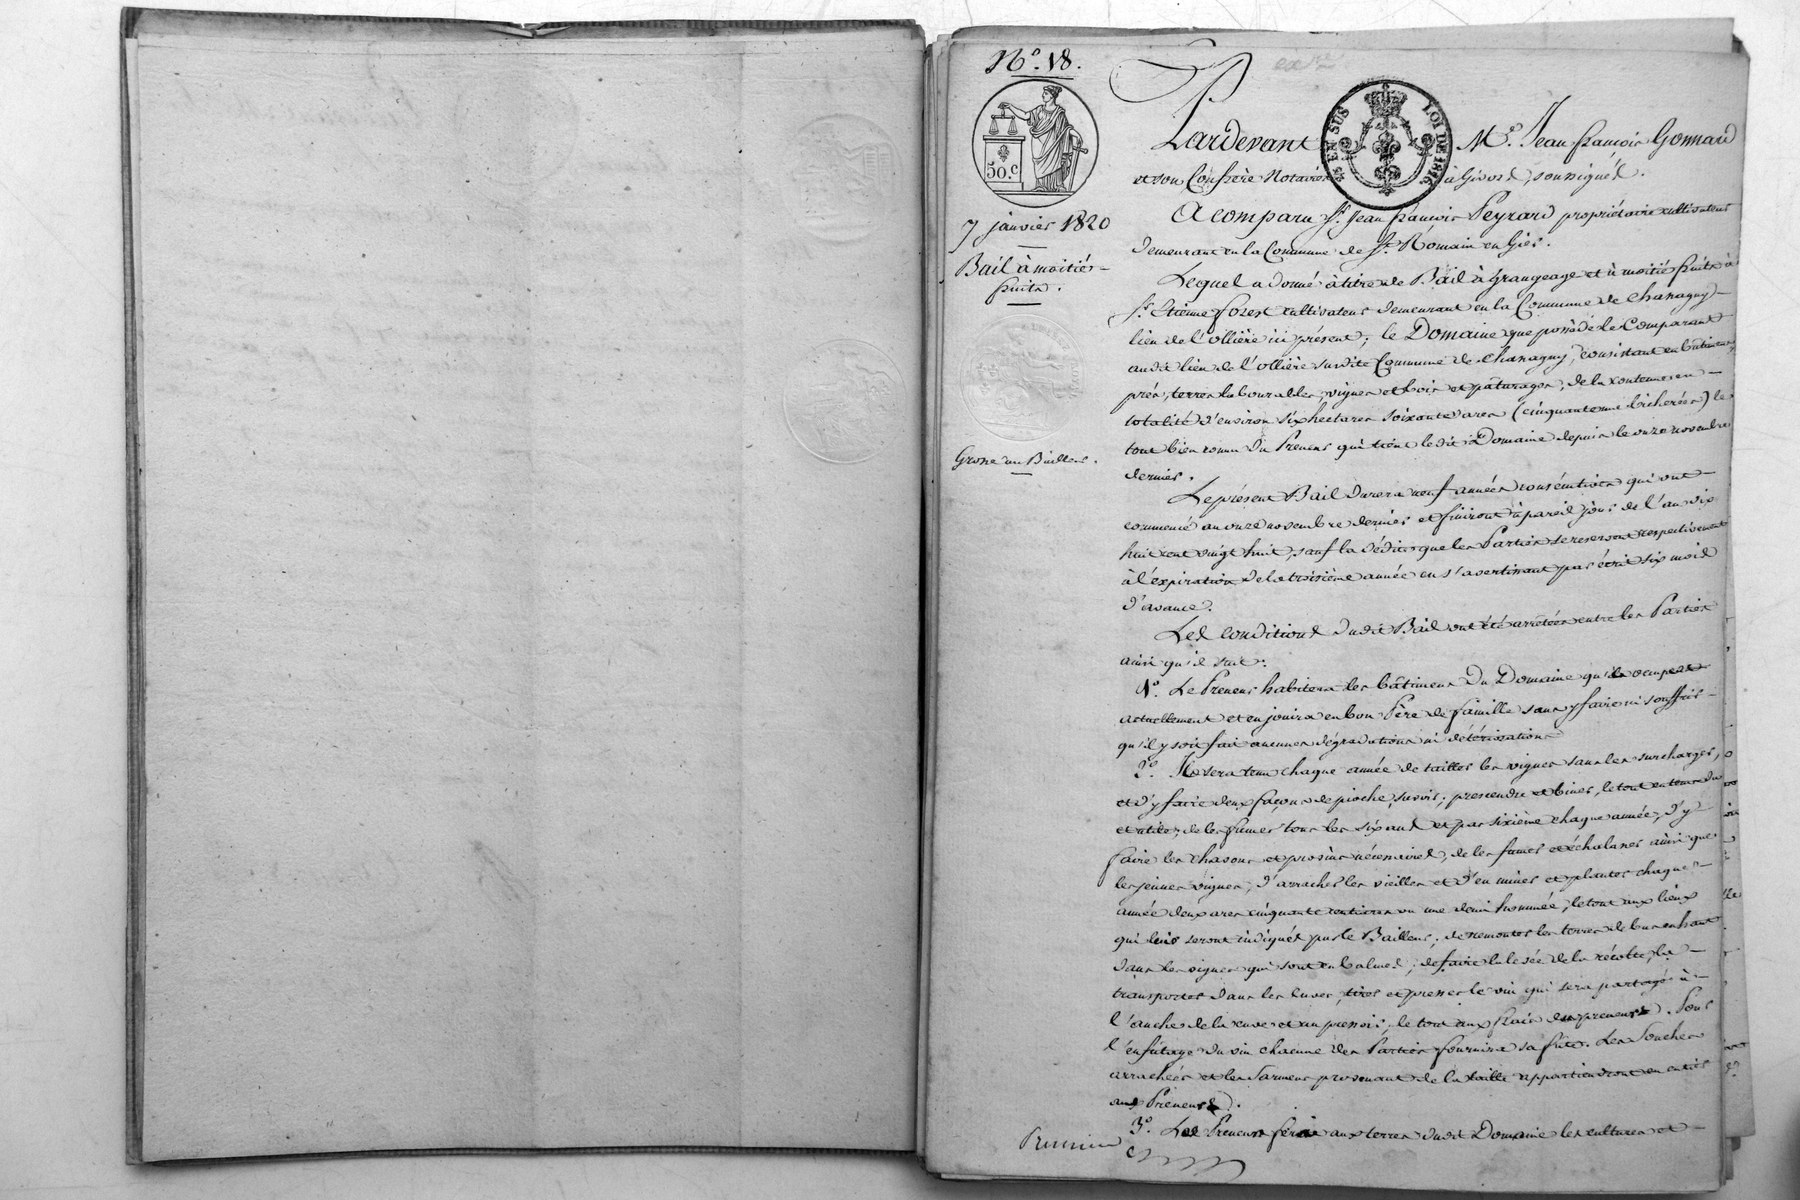 N.° 18.
50.c
EN SUS LOI DE 1816
7 janvier 1820
Bail à moitié-
fruits.
Grosse au Bailleur.
Pardevant M.e Jean françois Gonnard
et son Confrère Notaires à Givord, soussignés.
A comparu S.r Jean françois Peyrard propriétaire cultivateur
demeurant en la Commune de S.t Romain en Gier.
Lequel a donné à titre de Bail à Grangeage et à moitié fruits à
S.r Etienne forest cultivateur demeurant en la Commune de Chanagny
lieu de l'ollière ici présent; le Domaine que possède le Comparant
audit lieu de l'ollière susdite Commune de Chanagny, consistant en bâtimens,
prés, terres labourables, vignes et bois et pâturages, de la contenue en
totalité d'environ six hectares soixante ares (cinquante une bicherées) le
tout bien connu du Preneur qui tient ledit Domaine depuis le onze novembre
dernier.
Le présent Bail durera neuf années consécutives qui ont
commencé au onze novembre dernier et finiront à pareil jour de l'an dix
huit cent vingt huit, sauf la dédite que les Parties se reservent respectivement
à l'expiration de la troisième année en s'avertissant par écrit six mois
d'avance.
Les conditions dudit Bail ont été arrêtées entre les Parties
ainsi qu'il suit:
1°. Le Preneur habitera les bâtimens du Domaine qu'il occupe
actuellement et en jouira en bon Père de famille sans y faire ni souffrir
qu'il y soit fait aucunes dégradations ni détériorations
2°. Il sera tenu chaque année de tailler les vignes sans les surcharger,
et d'y faire deux façons de pioche, savoir; et biner, le tout en tems dû
et utile; de les fumer tous les six ans et par sixième chaque année, d'y
faire les chasons et provins nécessaires, de les fumer et échalasser ainsi que
les jeunes vignes, d'arracher les vieilles et d'en miner et planter chaque
année deux ares cinquante centiares ou une demi hommée, le tout aux lieux
qui leur seront indiqués par le Bailleur; de remonter les terres de bas en haut
dans les vignes qui sont en balmes; de faire la levée de la récolte, la
transporter dans les cuves, tirer et presser le vin qui sera partagé à
l'anche de la cuve et au pressoir, le tout aux frais du preneur. Pour
l'enfûtage du vin chacune des Parties fournira sa fûte. Les Souches
arrachées et les Sarmens provenant de la taille appartiendront en entier
au Preneur.
3°. Le Preneur fera aux terres dudit Domaine les cultures et